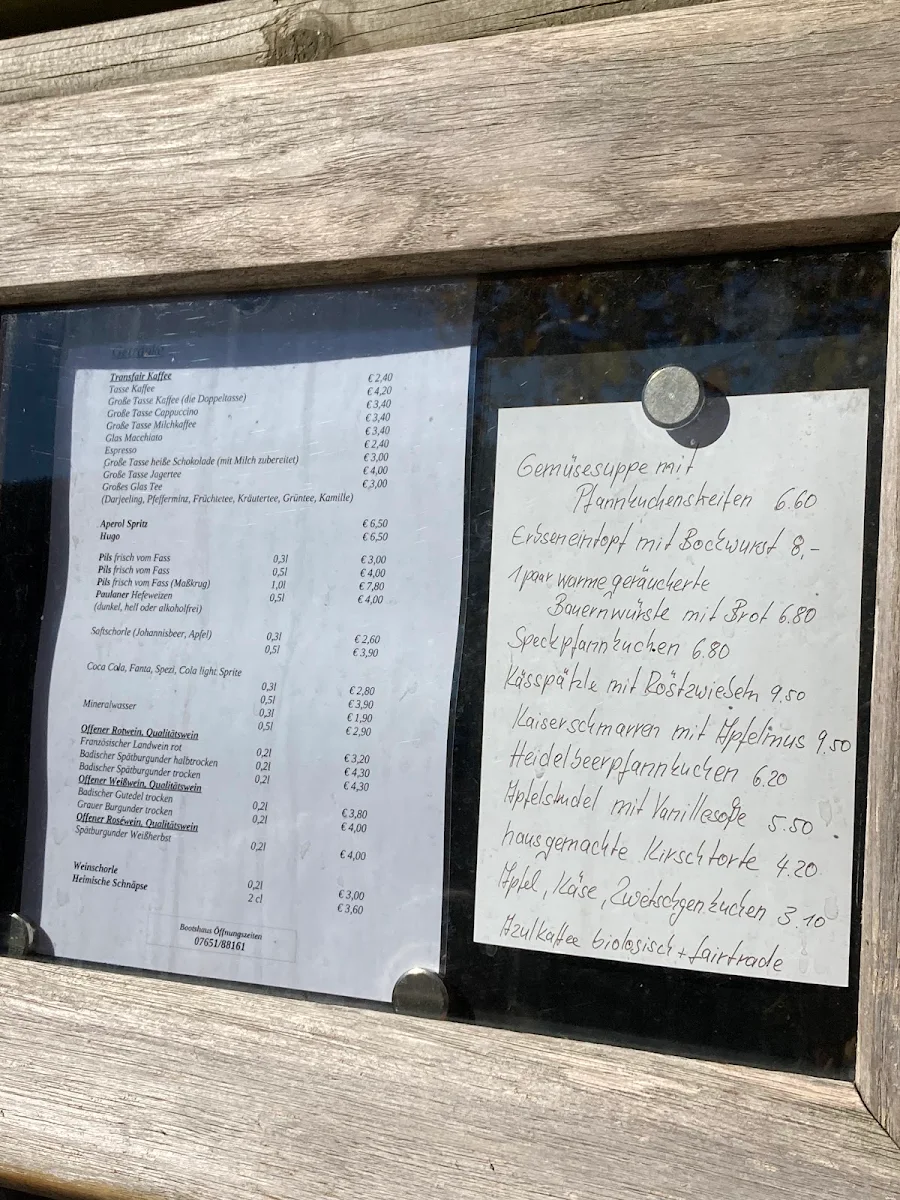 Transfair Kaffee
Tasse Kaffee € 2,40
Große Tasse Kaffee (die Doppeltasse) € 4,20
Große Tasse Cappuccino € 3,40
Große Tasse Milchkaffee € 3,40
Glas Macchiato € 3,40
Espresso € 2,40
Große Tasse heiße Schokolade (mit Milch zubereitet) € 3,00
Große Tasse Jagertee € 4,00
Großes Glas Tee € 3,00
(Darjeeling, Pfefferminz, Früchtetee, Kräutertee, Grüntee, Kamille)
Aperol Spritz € 6,50
Hugo € 6,50
Pils frisch vom Fass 0,3l € 3,00
Pils frisch vom Fass 0,5l € 4,00
Pils frisch vom Fass (Maßkrug) 1,0l € 7,80
Paulaner Hefeweizen 0,5l € 4,00
(dunkel, hell oder alkoholfrei)
Saftschorle (Johannisbeer, Apfel) 0,3l € 2,60
0,5l € 3,90
Coca Cola, Fanta, Spezi, Cola light Sprite
0,3l € 2,80
0,5l € 3,90
Mineralwasser 0,3l € 1,90
0,5l € 2,90
Offener Rotwein, Qualitätswein
Französischer Landwein rot 0,2l € 3,20
Badischer Spätburgunder halbtrocken 0,2l € 4,30
Badischer Spätburgunder trocken 0,2l € 4,30
Offener Weißwein, Qualitätswein
Badischer Gutedel trocken 0,2l € 3,80
Grauer Burgunder trocken 0,2l € 4,00
Offener Roséwein, Qualitätswein
Spätburgunder Weißherbst 0,2l € 4,00
Weinschorle 0,2l € 3,00
Heimische Schnäpse 2 cl € 3,60
Bootshaus Öffnungszeiten
07651/88161
Gemüsesuppe mit
Pfannkuchenstreifen 6.60
Erbseneintopf mit Bockwurst 8,-
1 paar warme geräucherte
Bauernwürste mit Brot 6.80
Speckpfannkuchen 6.80
Kässpätzle mit Röstzwiebeln 9.50
Kaiserschmarren mit Apfelmus 9.50
Heidelbeerpfannkuchen 6.20
Apfelstrudel mit Vanillesoße 5.50
hausgemachte Kirschtorte 4.20
Apfel, Käse, Zwetschgenkuchen 3.10
Azulkaffee biologisch + fairtrade